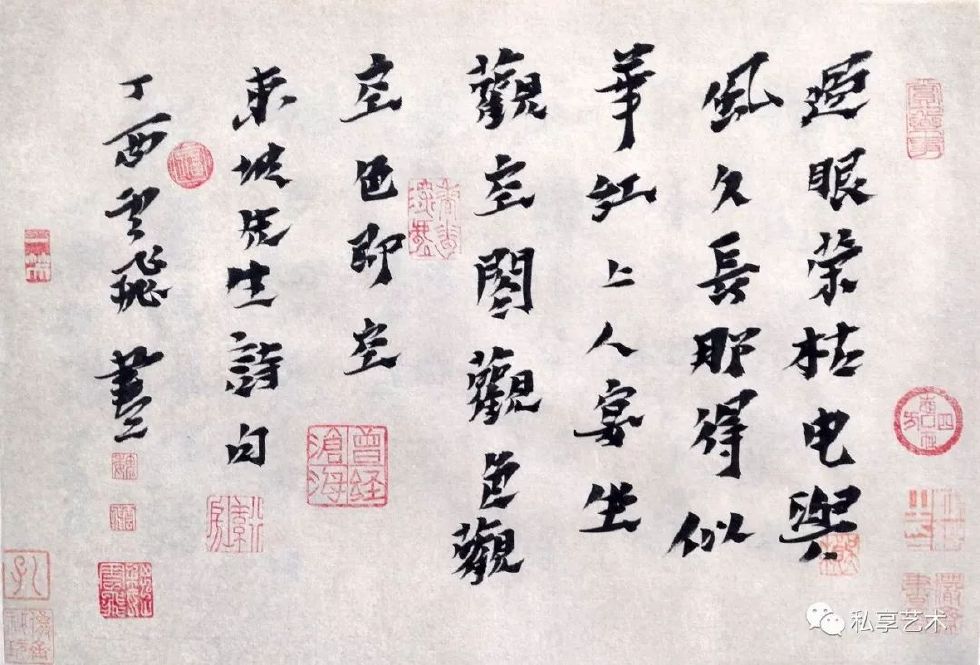 過眼榮枯电與
風久長那得似
華紅上人宴坐
觀空閣觀色觀
空色即空
東坡先生詩句
丁酉雲飛書
曾經滄海
私享艺术